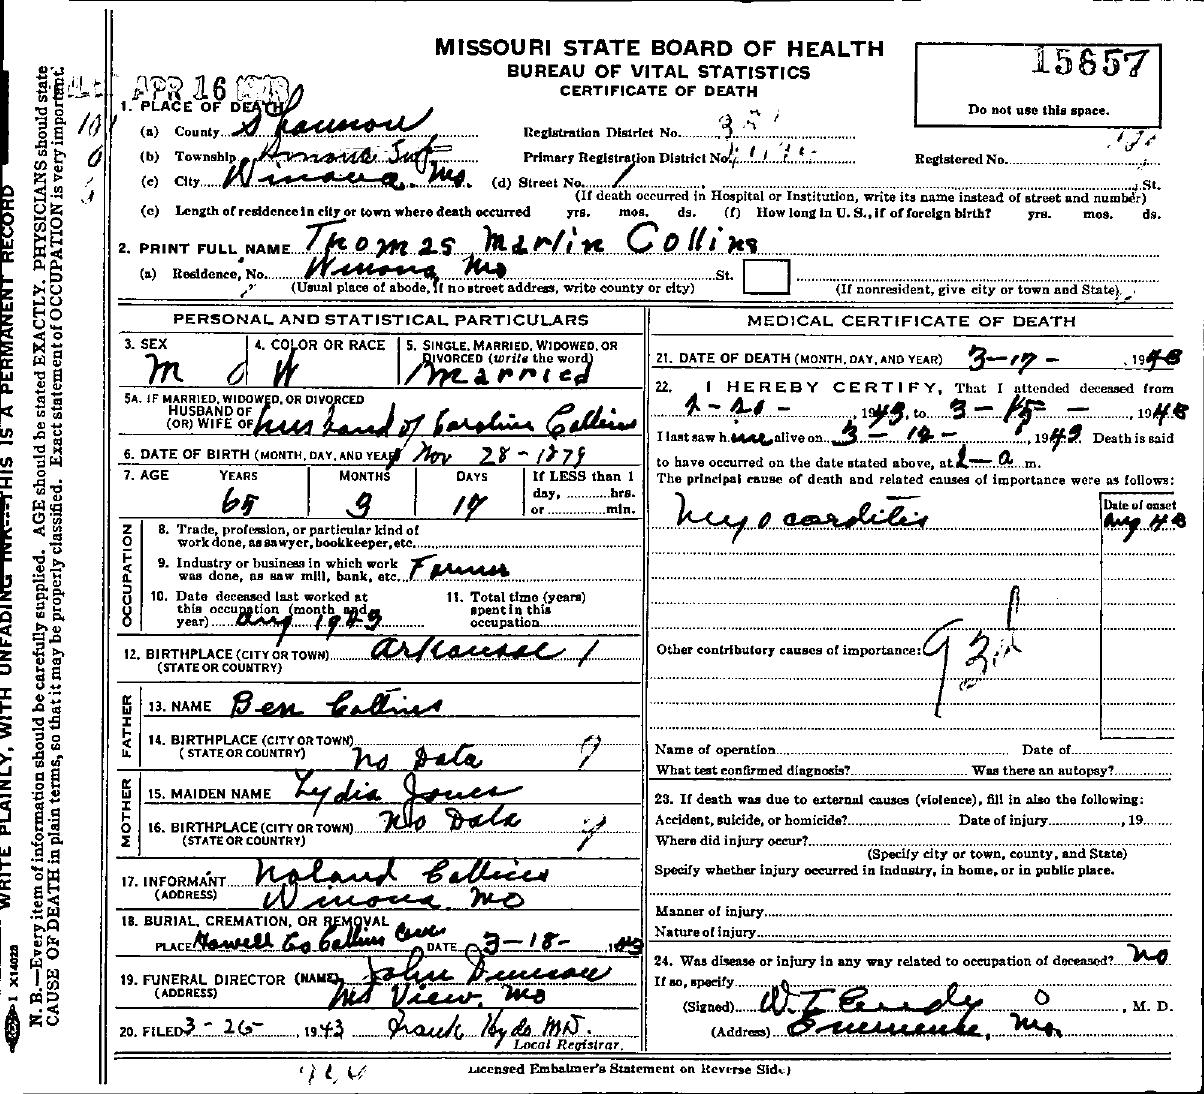 MISSOURI STATE BOARD OF HEALTH
BUREAU OF VITAL STATISTICS
CERTIFICATE OF DEATH
15657
Do not use this space.
APR 16
1. PLACE OF DEATH
(a) County Shannon
Registration District No.
(b) Township
Primary Registration District No.
Registered No.
(c) City Winona, Mo. (d) Street No. St.
(If death occurred in Hospital or Institution, write its name instead of street and number)
(e) Length of residence in city or town where death occurred yrs. mos. ds. (f) How long in U. S., if of foreign birth? yrs. mos. ds.
2. PRINT FULL NAME Thomas Marlin Collins
(a) Residence, No. Winona, Mo St.
(Usual place of abode, if no street address, write county or city) (If nonresident, give city or town and State)
PERSONAL AND STATISTICAL PARTICULARS
3. SEX M
4. COLOR OR RACE W
5. SINGLE, MARRIED, WIDOWED, OR DIVORCED (write the word) Married
5A. IF MARRIED, WIDOWED, OR DIVORCED
HUSBAND OF
(OR) WIFE OF husband of Caroline Collins
6. DATE OF BIRTH (MONTH, DAY, AND YEAR) Nov 28-1879
7. AGE YEARS MONTHS DAYS If LESS than 1
65 3 17 day, hrs.
or min.
OCCUPATION
8. Trade, profession, or particular kind of
work done, as sawyer, bookkeeper, etc.
9. Industry or business in which work
was done, as saw mill, bank, etc. Farmer
10. Date deceased last worked at
this occupation (month and
year) Aug 1943
11. Total time (years)
spent in this
occupation
12. BIRTHPLACE (CITY OR TOWN) Arkansas
(STATE OR COUNTRY)
FATHER
13. NAME Ben Collins
14. BIRTHPLACE (CITY OR TOWN)
(STATE OR COUNTRY) No Data
MOTHER
15. MAIDEN NAME Lydia Jones
16. BIRTHPLACE (CITY OR TOWN) No Data
(STATE OR COUNTRY)
17. INFORMANT Noland Collins
(ADDRESS) Winona Mo
18. BURIAL, CREMATION, OR REMOVAL
PLACE Howell Co Collins Cem DATE 3-18-1943
19. FUNERAL DIRECTOR (NAME) John Duncan
(ADDRESS) Mt View, Mo
20. FILED 3-26-, 1943 Frank Hyde MD.
Local Registrar.
MEDICAL CERTIFICATE OF DEATH
21. DATE OF DEATH (MONTH, DAY, AND YEAR) 3-17-, 1943
22. I HEREBY CERTIFY, That I attended deceased from
, 1943, to 3-15-, 1943
I last saw him alive on 3-12-, 1943 Death is said
to have occurred on the date stated above, at a. m.
The principal cause of death and related causes of importance were as follows:
Date of onset
Myocarditis Aug 43
Other contributory causes of importance:
Name of operation Date of
What test confirmed diagnosis? Was there an autopsy?
23. If death was due to external causes (violence), fill in also the following:
Accident, suicide, or homicide? Date of injury , 19
Where did injury occur?
(Specify city or town, county, and State)
Specify whether injury occurred in industry, in home, or in public place.
Manner of injury
Nature of injury
24. Was disease or injury in any way related to occupation of deceased? No
If so, specify
(Signed) W. T. Eudy , M. D.
(Address) Eminence, Mo.
Licensed Embalmer's Statement on Reverse Side)
WRITE PLAINLY, WITH UNFADING INK---THIS IS A PERMANENT RECORD
N. B.—Every item of information should be carefully supplied. AGE should be stated EXACTLY. PHYSICIANS should state
CAUSE OF DEATH in plain terms, so that it may be properly classified. Exact statement of OCCUPATION is very important.
1 X14023